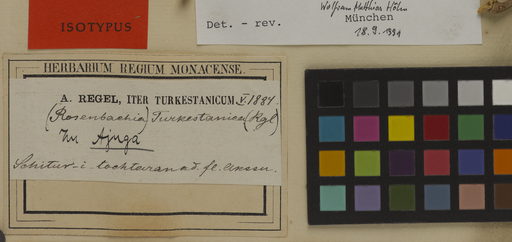 ISOTYPUS
Wolfram Matthias Höhn
München
Det. - rev. 18.9.1991
HERBARIUM REGIUM MONACENSE.
A. REGEL, ITER TURKESTANICUM V 1881.
(Rosenbachia) Turkestanica (Rgl)
Zu Ajuga
Schitur-i-tochtaran a. d. fl.